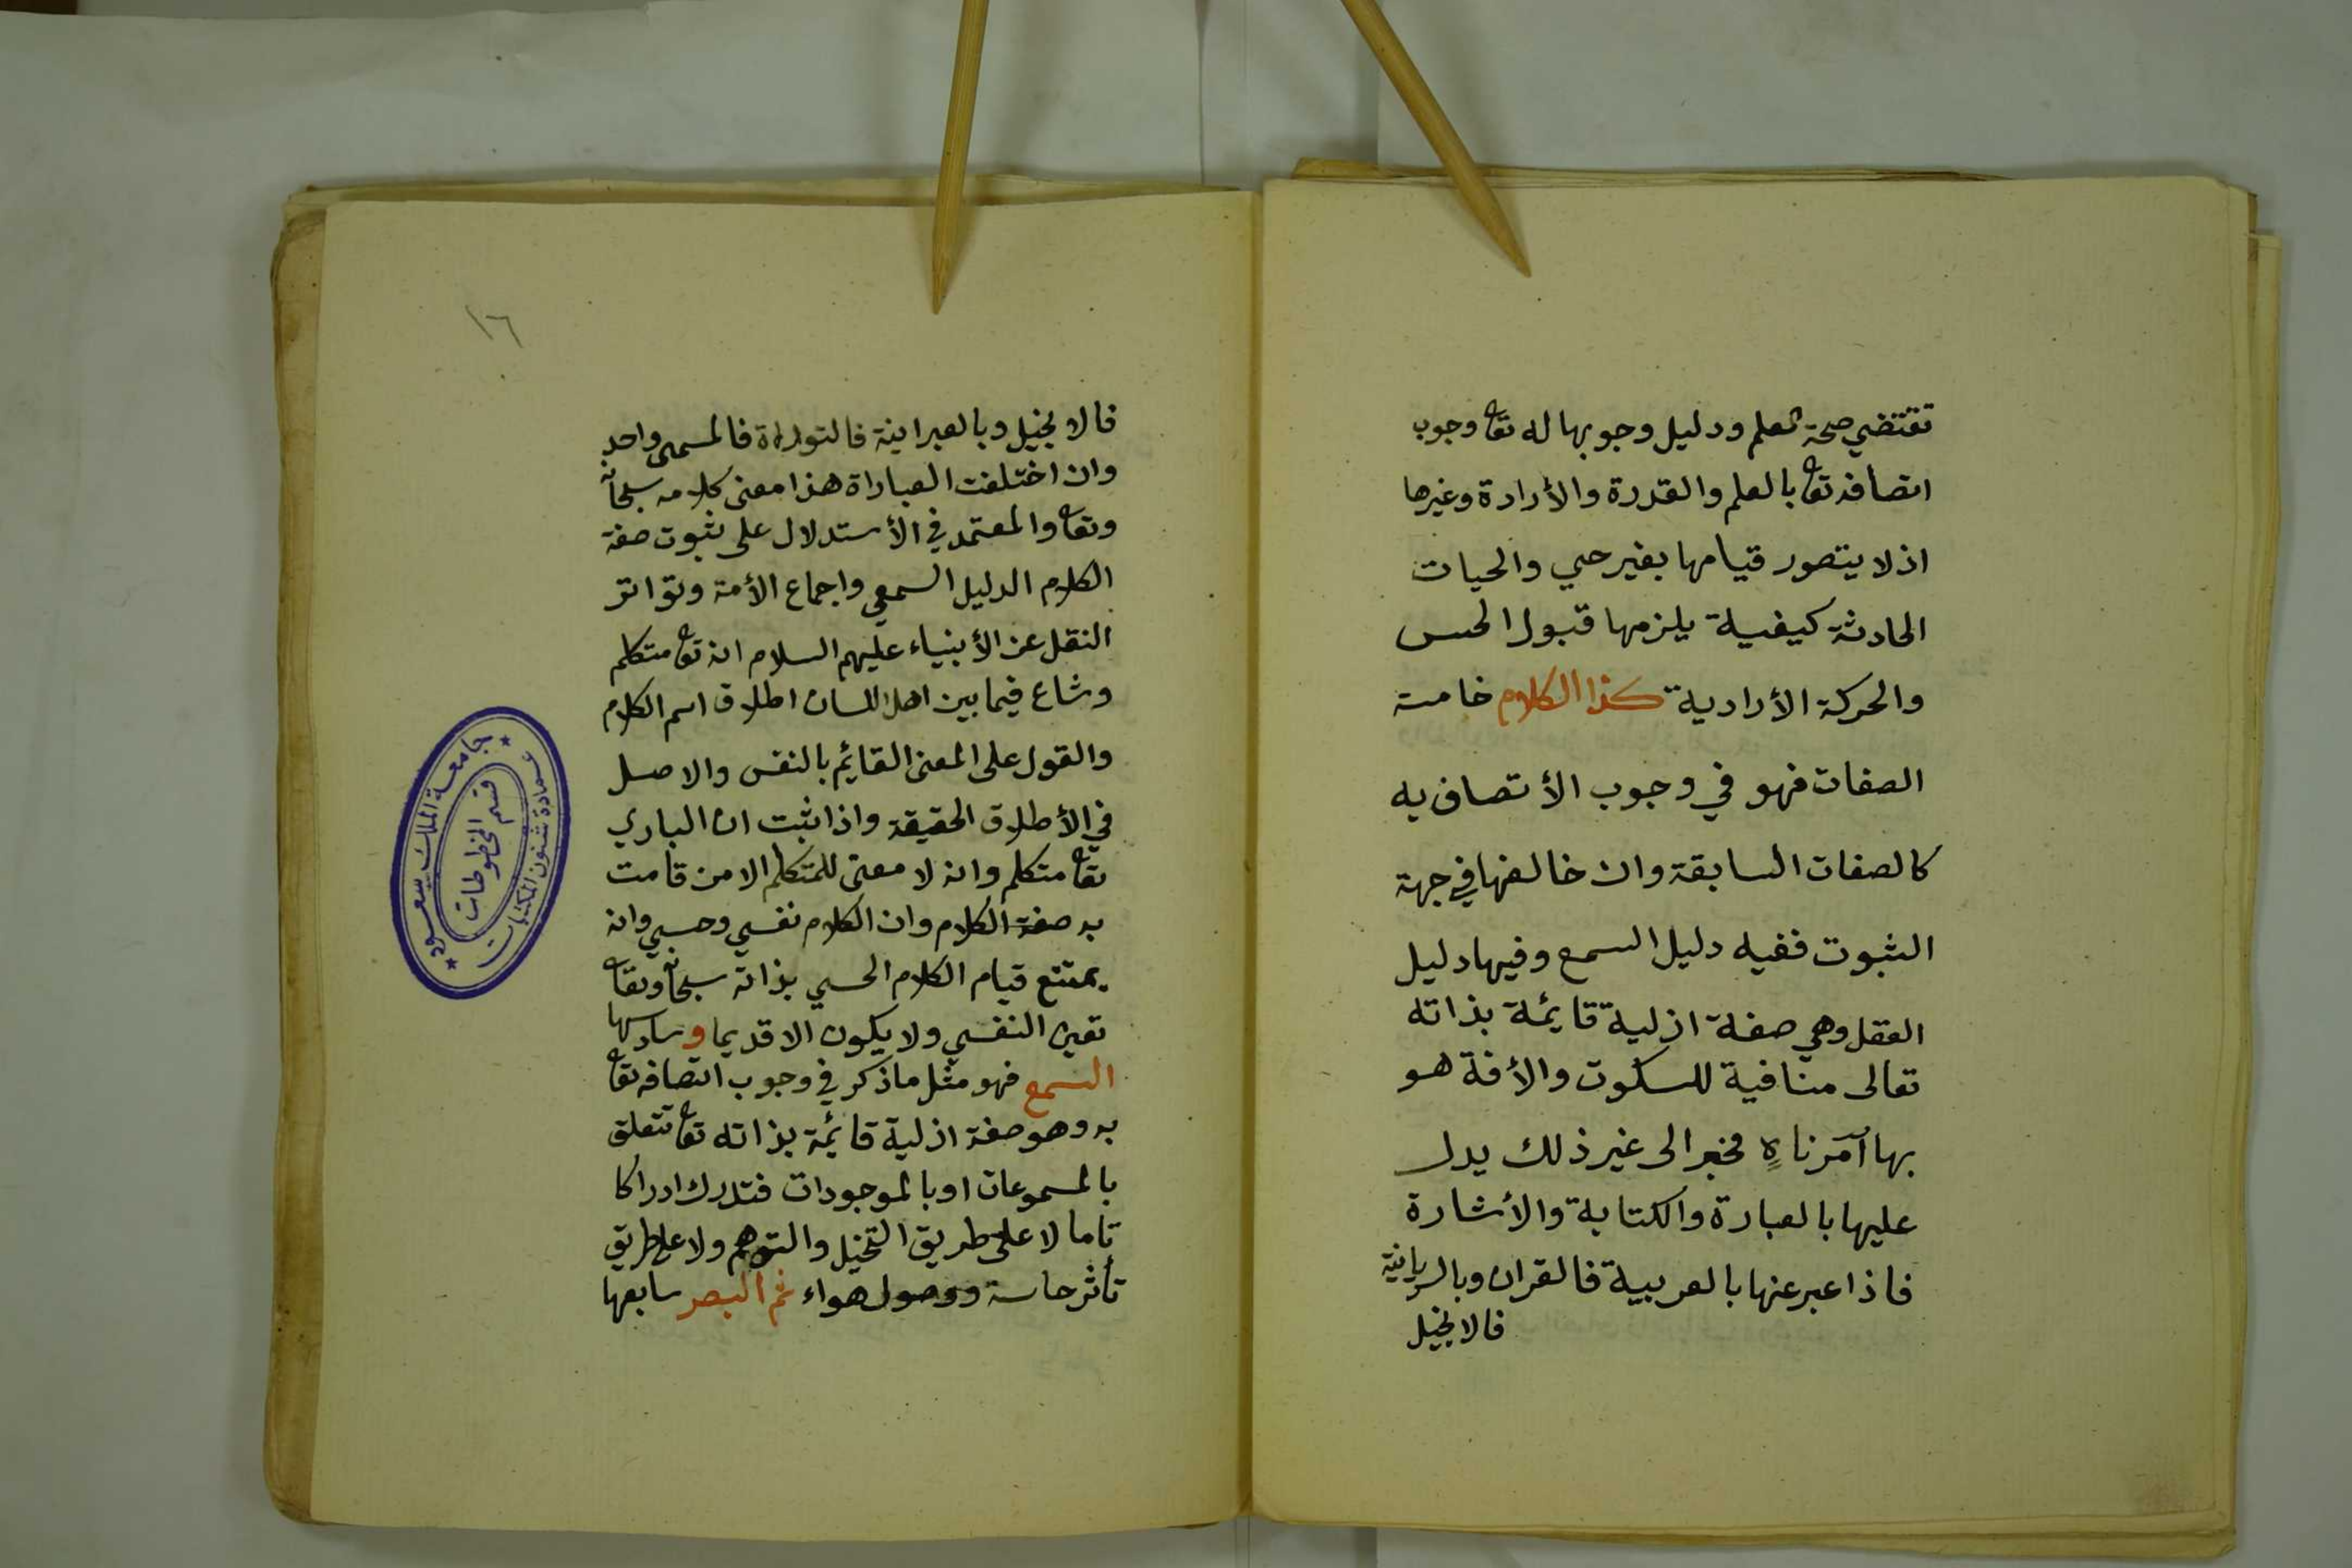 تقتضي صحة العلم ودليل وجوبها له تعا وجوب
اتصافه تعا بالعلم والقدرة والأرادة وغيرها
اذ لا يتصور قيامها بغير حي والحيات
الحادثة كيفية يلزمها قبول الحس
والحركة الأرادية كذا الكلام خامسة
الصفات فهو في وجوب الأتصاف به
كالصفات السابقة وان خالفها في جهة
الثبوت ففيه دليل السمع وفيها دليل
العقل وهي صفة ازلية قايمة بذاته
تعالى منافية للسكوت والأفة هو
بها آمر ناهٍ مخبر الى غير ذلك يدل
عليها بالعبارة والكتابة والأشارة
فاذا عبر عنها بالعربية فالقران وبالسريانية
فالانجيل
١٦
فالانجيل وبالعبرانية فالتوراة فالمسمى واحد
وان اختلفت العباراة هذا معنى كلامه سبحانه
وتعا والمعتمد في الأستدلال على ثبوت صفة
الكلام الدليل السمعي واجماع الأمة وتواتر
النقل عن الأنبياء عليهم السلام انه تعا متكلم
وشاع فيما بين اهل اللسان اطلاق اسم الكلام
والقول على المعنى القايم بالنفس والاصل
في الأطلاق الحقيقة واذا ثبت ان الباري
تعا متكلم وانه لا معنى للمتكلم الا من قامت
به صفة الكلام وان الكلام نفسي وحسي وانه
يمتنع قيام الكلام الحسي بذاته سبحانه وتعا
تعين النفسي ولا يكون الا قديما وسادسها
السمع فهو مثل ما ذكر في وجوب اتصافه تعا
به وهو صفة ازلية قائمة بذاته تعا تتعلق
بالمسموعات او بالموجودات فتدرك ادراكا
تاما لا على طريق التخيل والتوهم ولا على طريق
تأثر حاسة ووصول هواء ثم البصر سابعها
جامعة الملك سعود
عمادة شئون المكتبات
قسم المخطوطات